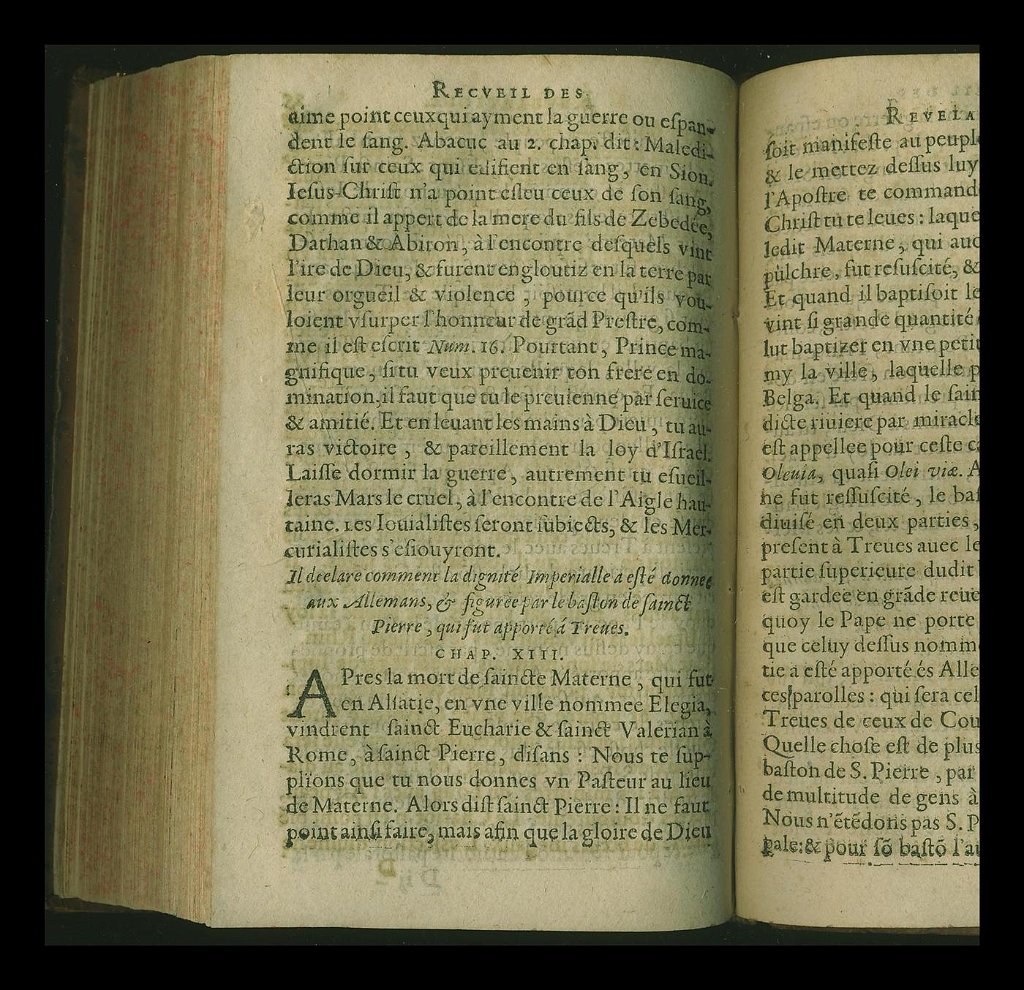 RECVEIL DES
aime point ceux qui ayment la guerre ou eſpan-
dent le ſang. Abacuc au 2. chap. dit: Maledi-
ction ſur ceux qui edifient en ſang, en Sion.
Ieſus Chriſt n'a point eſleu ceux de ſon ſang,
comme il appert de la mere du fils de Zebedée,
Dathan & Abiron, à l'encontre deſquels vint
l'ire de Dieu, & furent engloutiz en la terre par
leur orgueil & violence, pource qu'ils vou-
loient vſurper l'honneur de grãd Preſtre, com-
me il eſt eſcrit Num. 16. Pourtant, Prince ma-
gnifique, ſi tu veux preuenir ton frere en do-
mination, il faut que tu le preuienne par ſeruice
& amitié. Et en leuant les mains à Dieu, tu au-
ras victoire, & pareillement la loy d'Iſrael.
Laiſſe dormir la guerre, autrement tu eſueil-
leras Mars le cruel, à l'encontre de l'Aigle hau-
taine. Les Iouialiſtes ſeront ſubiects, & les Mer-
curialiſtes s'eſiouyront.
Il declare comment la dignité Imperialle a eſté donnee
aux Allemans, & figurée par le baſton de ſainct
Pierre, qui fut apporté à Treues.
CHAP. XIII.
APres la mort de ſaincte Materne, qui fut
en Alſatie, en vne ville nommee Elegia,
vindrent ſainct Eucharie & ſainct Valerian à
Rome, à ſainct Pierre, diſans : Nous te ſup-
plions que tu nous donnes vn Paſteur au lieu
de Materne. Alors diſt ſainct Pierre : Il ne faut
point ainſi faire, mais afin que la gloire de Dieu
REVELA
ſoit manifeſte au peupl
& le mettez deſſus luy
l'Apoſtre te command
Chriſt tu te leues : laque
ledit Materne, qui auo
pulchre, fut reſuſcité, &
Et quand il baptiſoit le
vint ſi grande quantité
lut baptizer en vne petit
my la ville, laquelle p
Belga. Et quand le ſain
dicte riuiere par miracle
eſt appellee pour ceſte c
Oleuia, quaſi Olei viæ. A
ne fut reſſuſcité, le baſ
diuiſé en deux parties,
preſent à Treues auec le
partie ſuperieure dudit
eſt gardee en grãde reue
quoy le Pape ne porte
que celuy deſſus nomm
tie a eſté apporté és Alle
ces parolles : qui ſera cel
Treues de ceux de Cou
Quelle choſe eſt de plus
baſton de S. Pierre, par
de multitude de gens à
Nous n'étédons pas S. P
pale: & pour ſõ baſtõ l'au